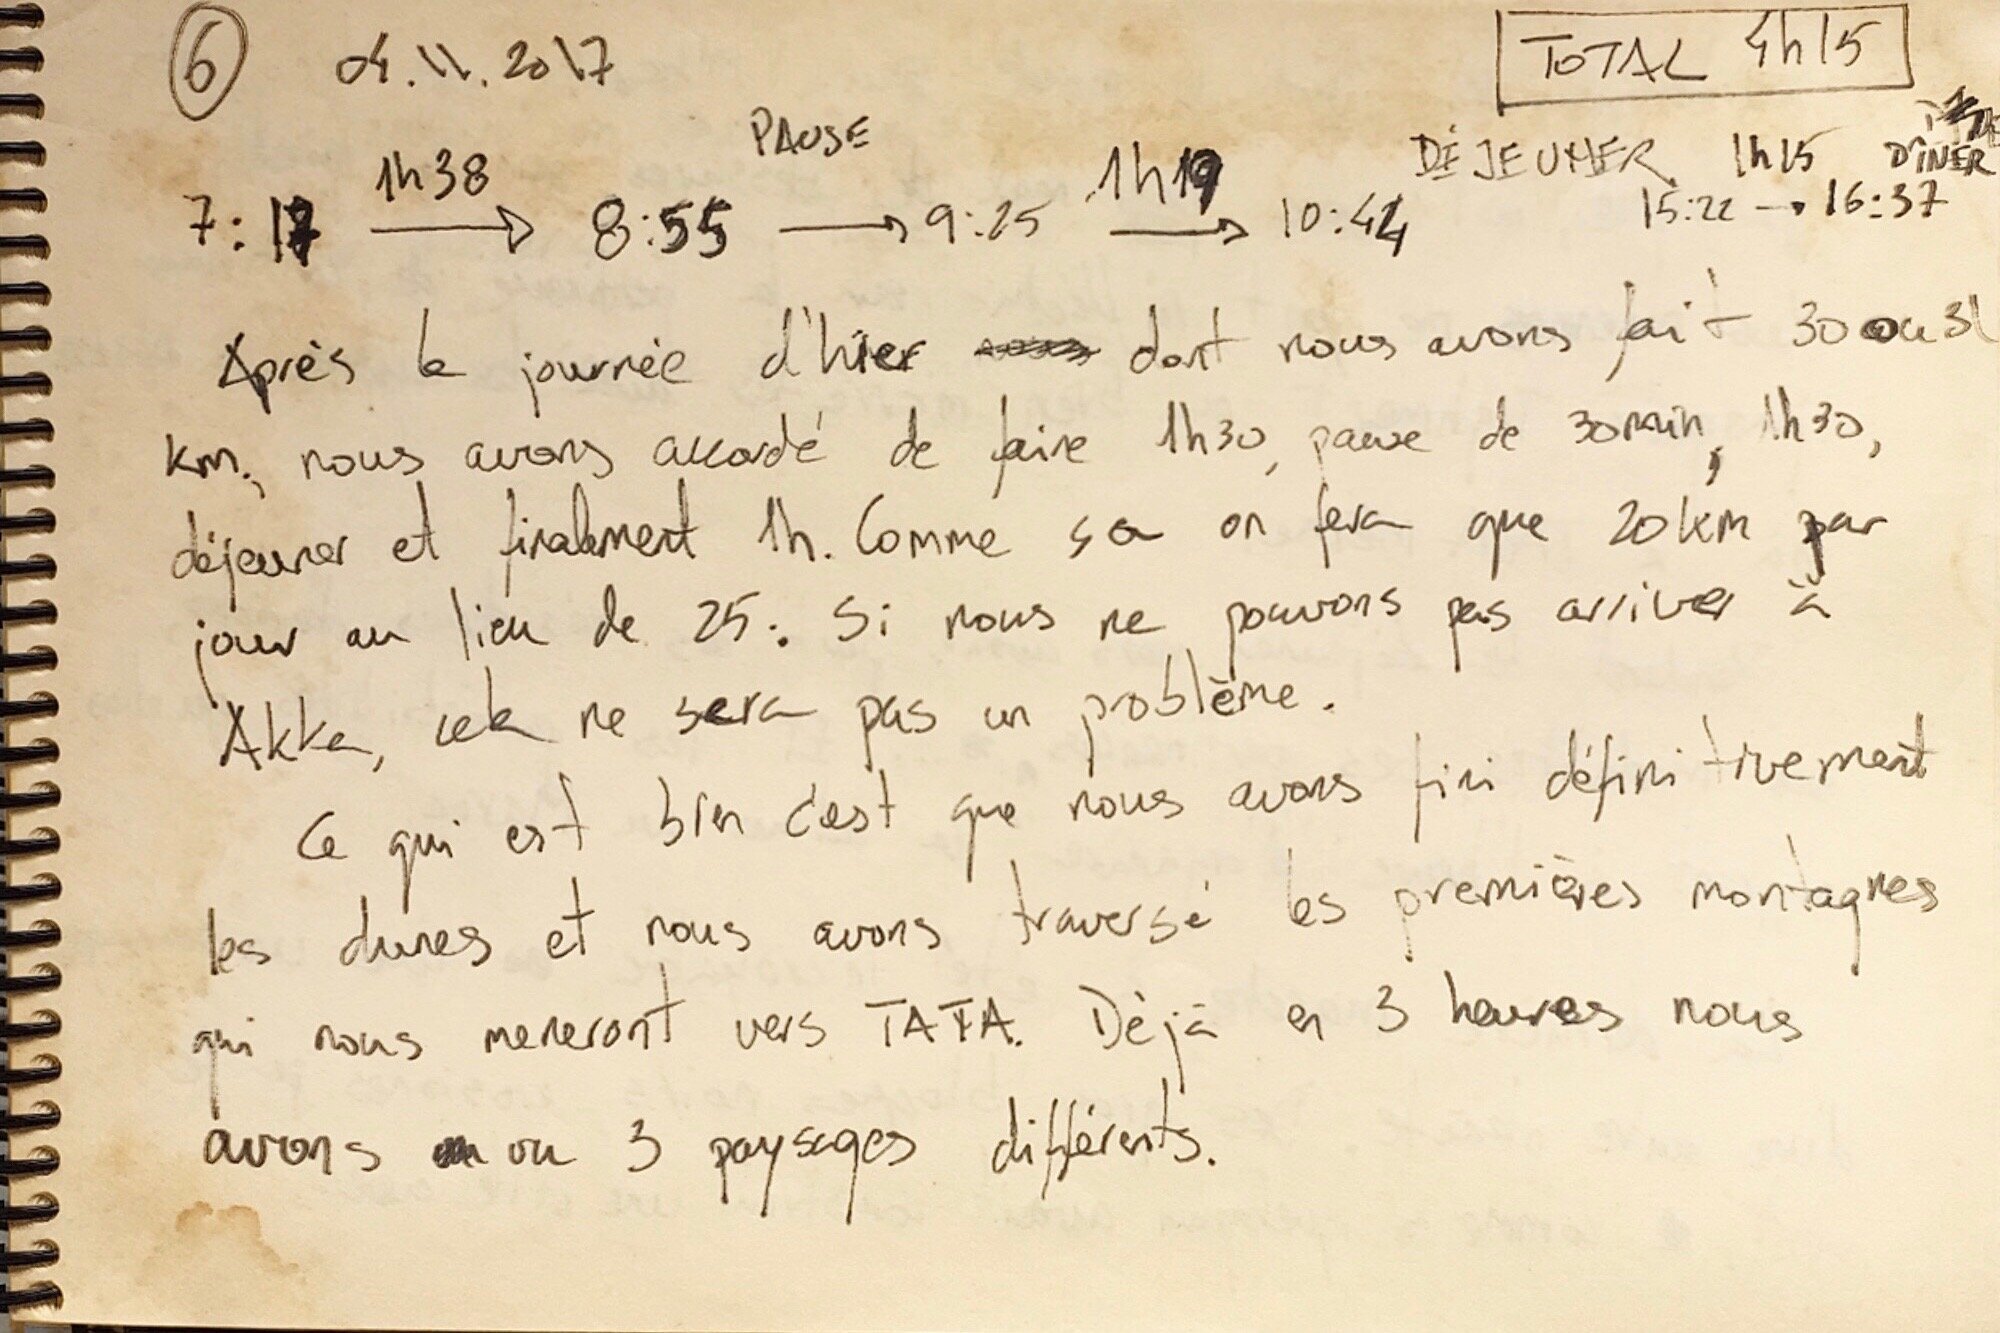 6 04.11.2017 TOTAL 4h15
PAUSE
1h38 1h19 DÉJEUNER 1h15 DINER
7:17 → 8:55 → 9:25 → 10:44 15:22 → 16:37
Après la journée d'hier dont nous avons fait 30 ou 31
km., nous avons accordé de faire 1h30, pause de 30min, 1h30,
déjeuner et finalement 1h. Comme sa on fera que 20km par
jour au lieu de 25. Si nous ne pouvons pas arriver à
Akka, cela ne sera pas un problème.
Ce qui est bien c'est que nous avons fini définitivement
les dunes et nous avons traversé les premières montagnes
qui nous meneront vers TATA. Déjà en 3 heures nous
avons vu 3 paysages différents.